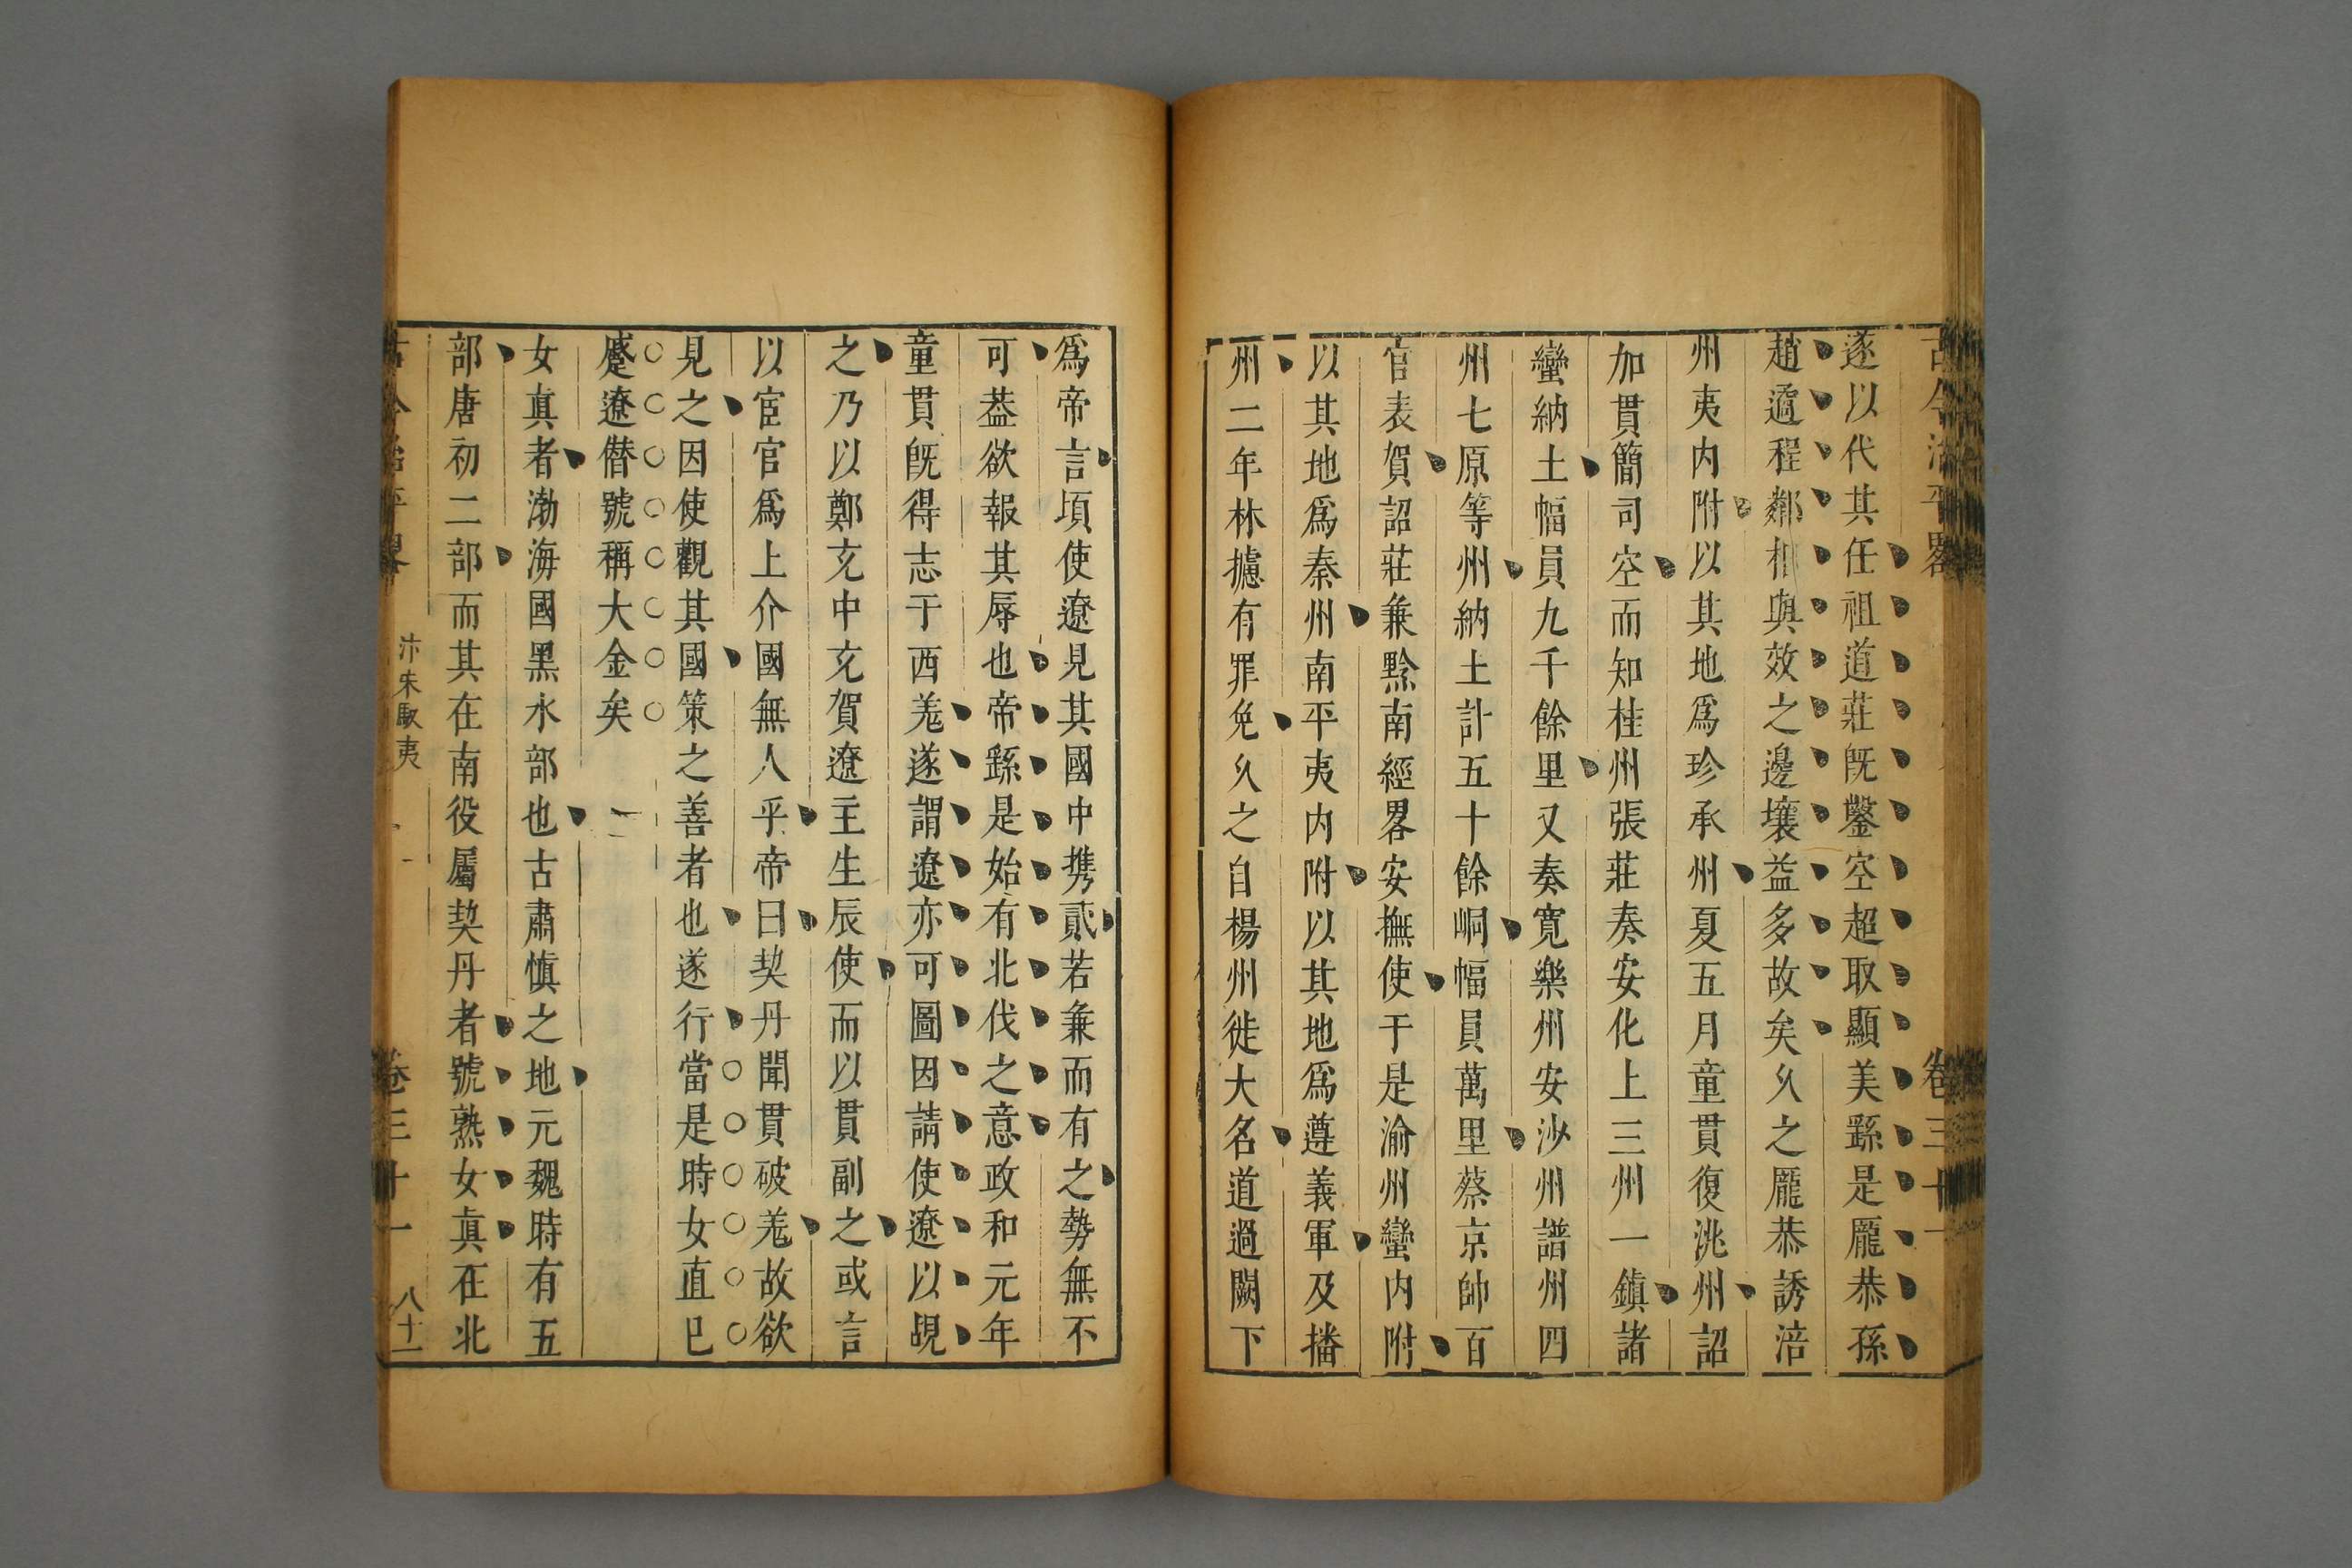 遂以代其任祖道莊既鑿空超取顯美繇是龎恭孫
趙遹程鄰相與效之邊壤益多故矣久之龎恭誘涪
州夷内附以其地爲珍承州夏五月童貫復洮州詔
加貫簡司空而知桂州張莊奏安化上三州一鎮諸
蠻納土幅員九千餘里又奏寛樂州安沙州譜州四
州七原等州納土計五十餘峒幅員萬里蔡京帥百
官表賀詔莊兼黔南經畧安撫使于是渝州蠻内附
以其地爲秦州南平夷内附以其地爲遵義軍及播
州二年林攄有罪免久之自楊州徙大名道過闕下
爲帝言頃使遼見其國中携貳若兼而有之勢無不
可葢欲報其辱也帝繇是始有北伐之意政和元年
童貫既得志于西羗遂謂遼亦可圖因請使遼以覘
之乃以鄭允中充賀遼主生辰使而以貫副之或言
以宦官爲上介國無人乎帝曰契丹聞貫破羗故欲
見之因使觀其國策之善者也遂行當是時女直已
蹙遼僣號稱大金矣
女眞者渤海國黑水部也古肅慎之地元魏時有五
部唐初二部而其在南役屬契丹者號熟女眞在北
卷三十一
八十一